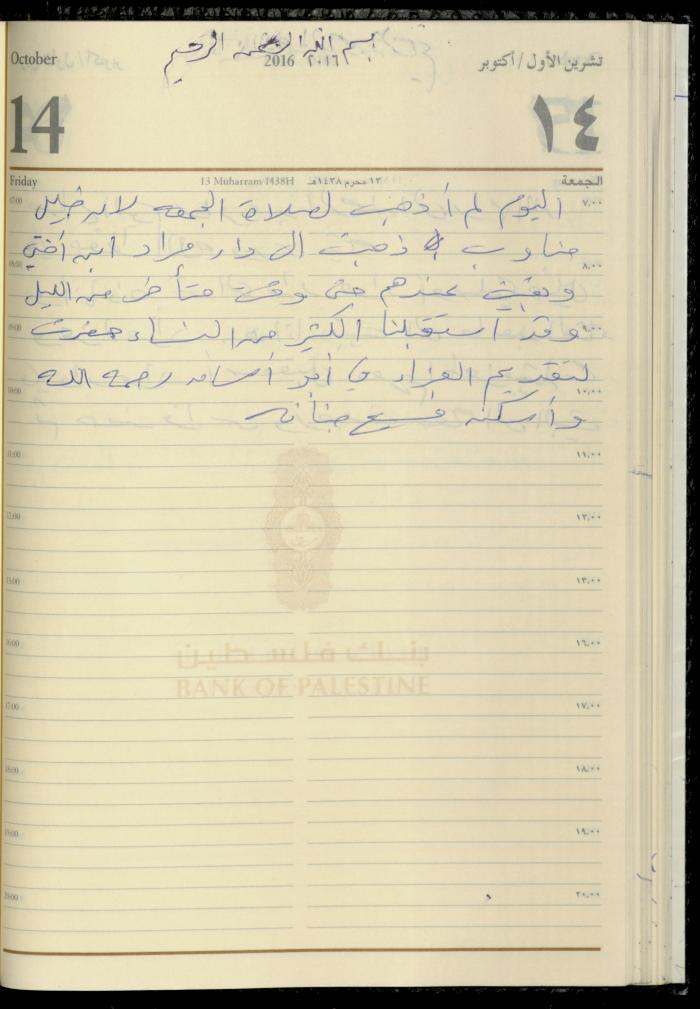 بسم الله الرحمن الرحيم
October 2016 ٢٠١٦ تشرين الأول / أكتوبر
14 ١٤
Friday 13 Muharram 1438H ١٣ محرم ١٤٣٨هـ الجمعة
اليوم لم أذهب لصلاة الجمعة لانه خليل
مناوب ذهبت الى دار مراد ابن أختي
وبقيت عندهم حتى وقت متأخر من الليل
وقد استقبلنا الكثير من النساء حضرت
لتقديم العزاء في أبو أسامه رحمه الله
وأسكنه فسيح جنانه
٧،٠٠
08:00 ٨،٠٠
09:00 ٩،٠٠
10:00 ١٠،٠٠
11:00 ١١،٠٠
12:00 ١٢،٠٠
١٣،٠٠
16:00 ١٦،٠٠
17:00 ١٧،٠٠
18:00 ١٨،٠٠
19:00 ١٩،٠٠
20:00 ٢٠،٠٠
بنك فلسطين
BANK OF PALESTINE